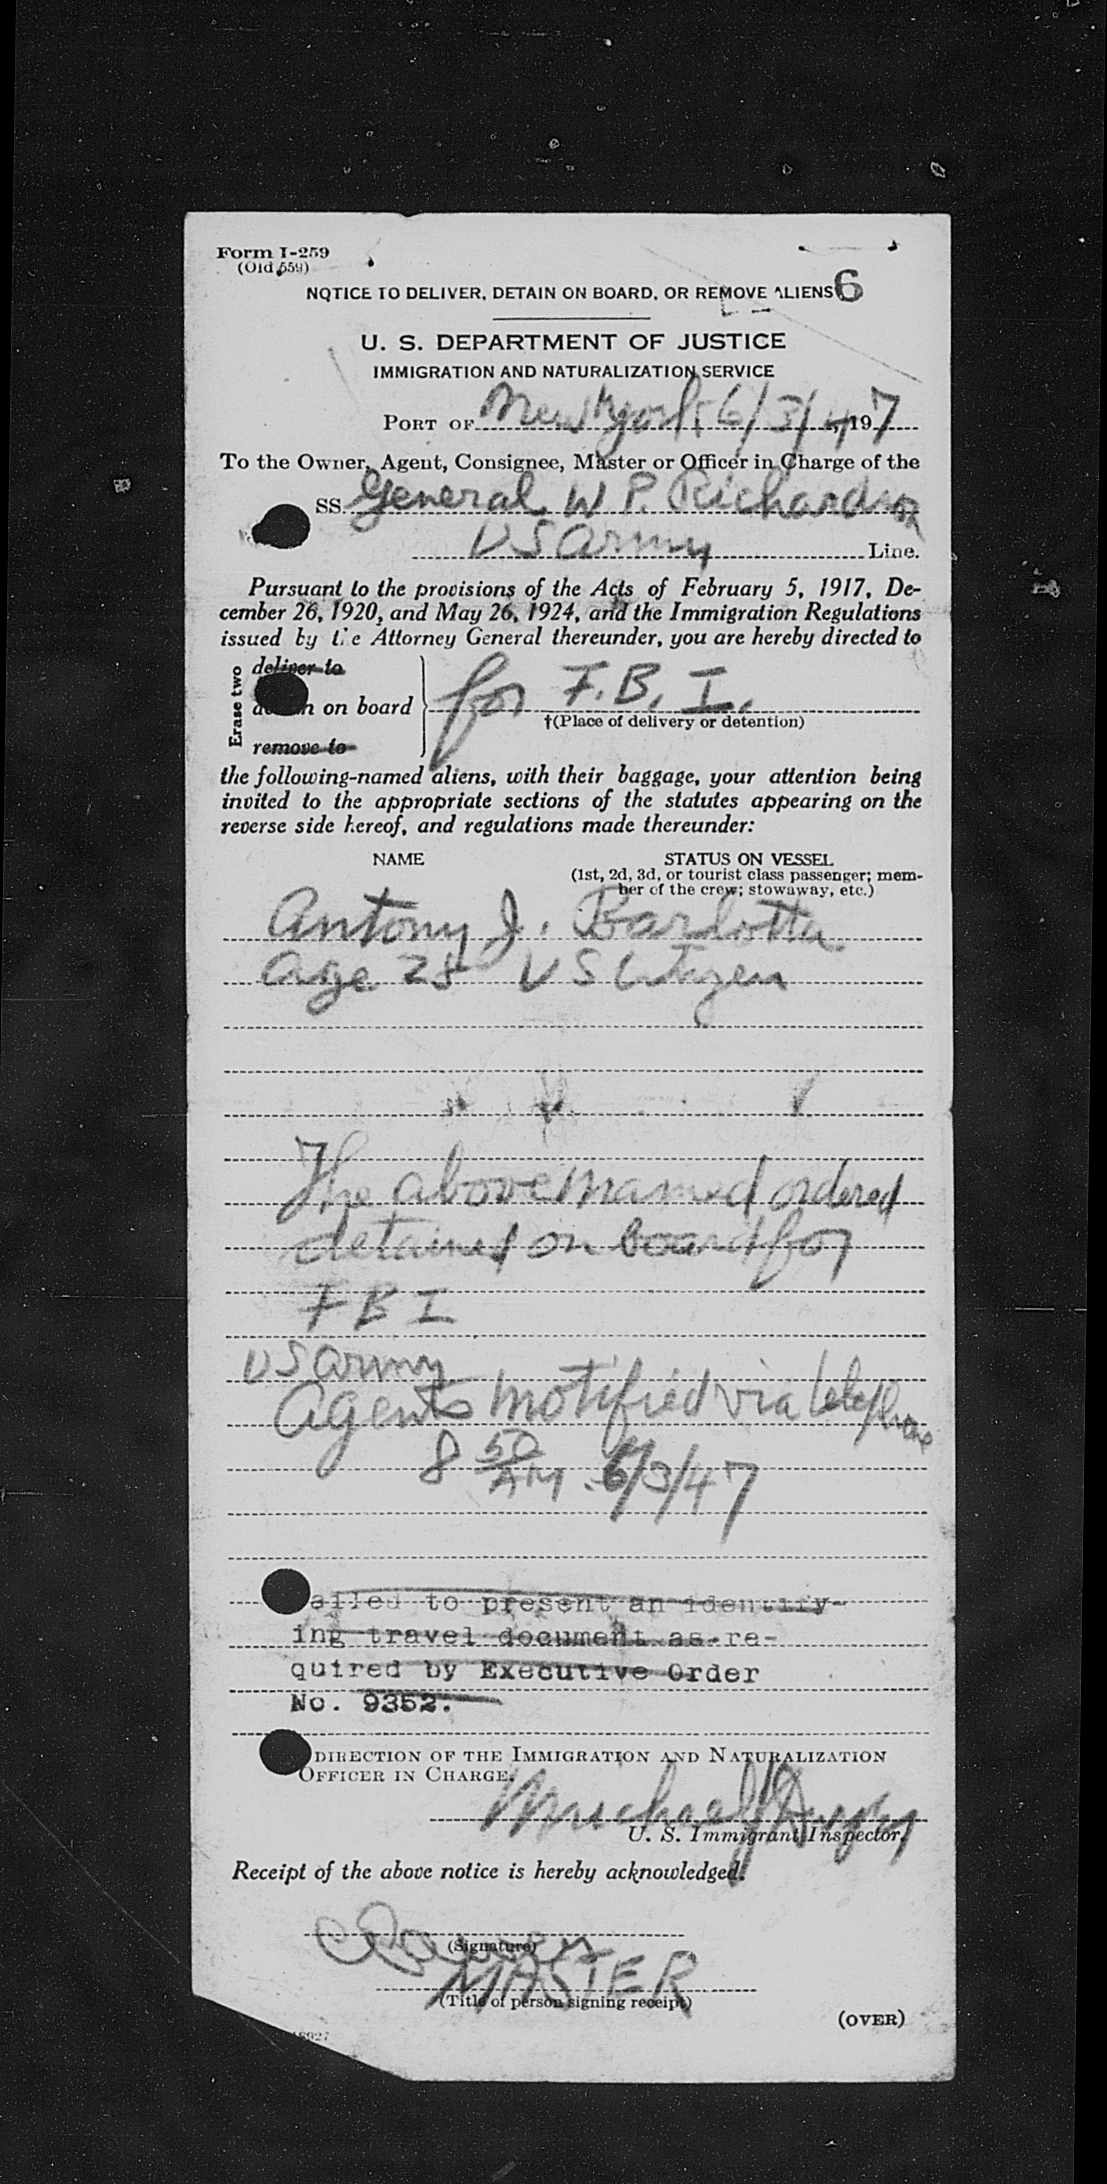 Form I-259
(Old 559)
NOTICE TO DELIVER, DETAIN ON BOARD, OR REMOVE ALIENS 6
U. S. DEPARTMENT OF JUSTICE
IMMIGRATION AND NATURALIZATION SERVICE
PORT OF New York 6/3/47, 197
To the Owner, Agent, Consignee, Master or Officer in Charge of the
SS General W P. Richardson
US Army Line.
Pursuant to the provisions of the Acts of February 5, 1917, De-
cember 26, 1920, and May 26, 1924, and the Immigration Regulations
issued by the Attorney General thereunder, you are hereby directed to
Erase two
deliver to
n on board } for F.B.I.
†(Place of delivery or detention)
remove to
the following-named aliens, with their baggage, your attention being
invited to the appropriate sections of the statutes appearing on the
reverse side hereof, and regulations made thereunder:
NAME STATUS ON VESSEL
(1st, 2d, 3d, or tourist class passenger; mem-
ber of the crew; stowaway, etc.)
Antony J. Barlotta
age 25 US Citizen
The above named ordered
detained on board for
F B I
US Army
Agents notified via telephone
8 50 AM 6/3/47
ailed to present an identify-
ing travel document as re-
quired by Executive Order
No. 9352.
DIRECTION OF THE IMMIGRATION AND NATURALIZATION
OFFICER IN CHARGE.
Michael J
U. S. Immigrant Inspector.
Receipt of the above notice is hereby acknowledged.
(Signature)
MASTER
(Title of person signing receipt)
(OVER)